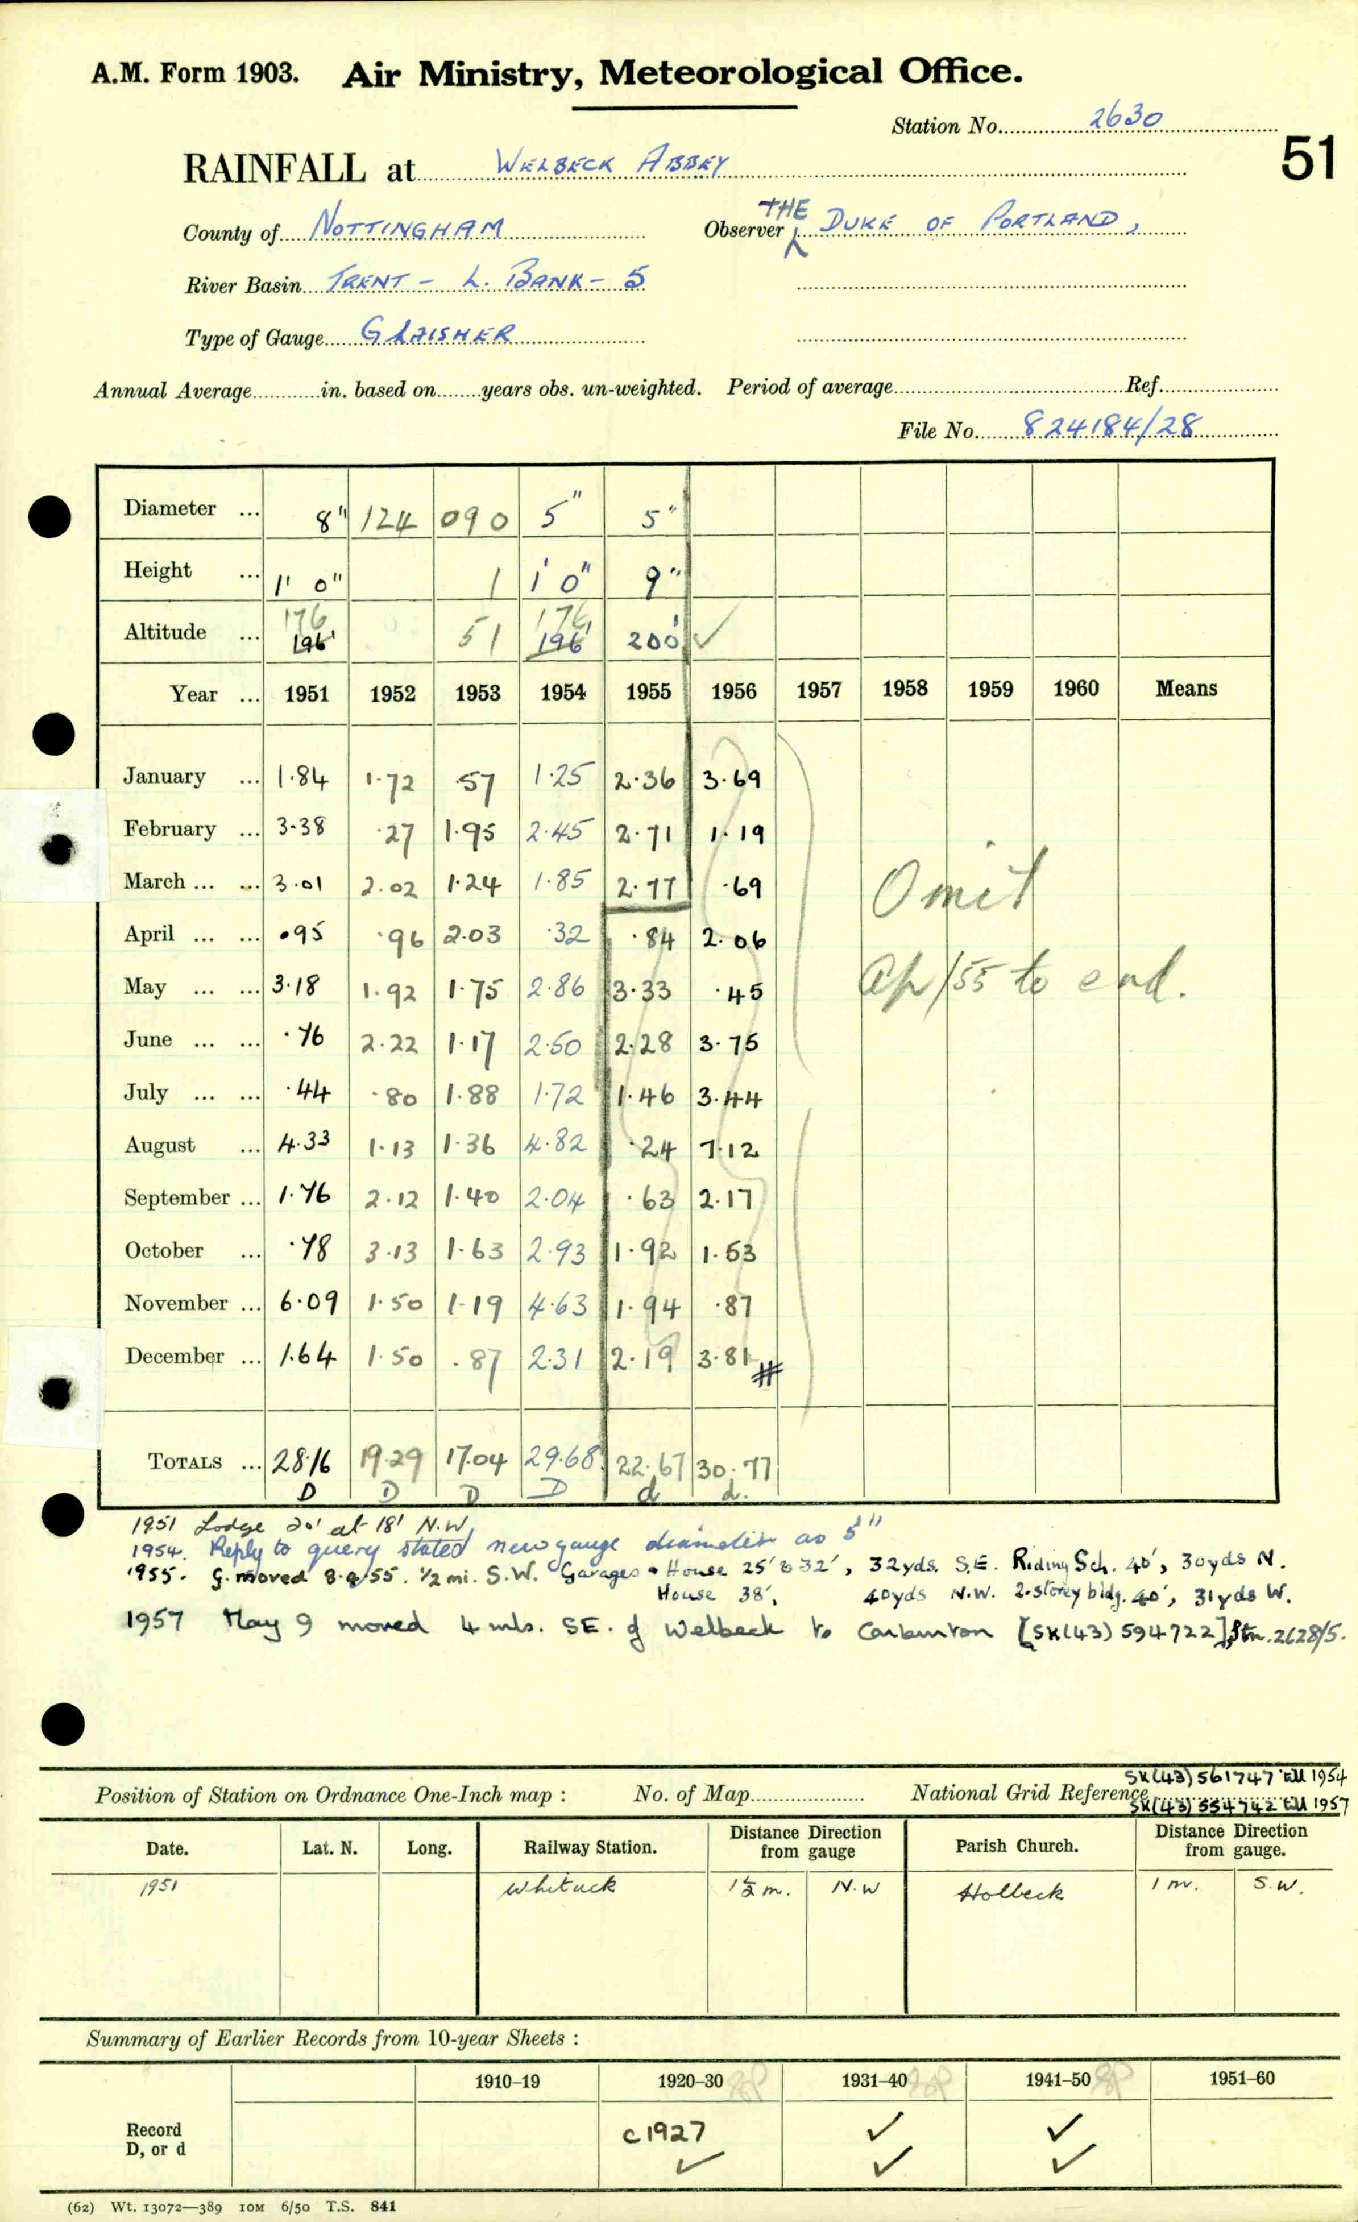 A.M. Form 1903. Air Ministry, Meteorological Office.
Station No. 2630
51
RAINFALL at WELBECK ABBEY
County of NOTTINGHAM Observer THE DUKE OF PORTLAND,
River Basin TRENT – L. BANK – 5
Type of Gauge GLAISHER
Annual Average in. based on years obs. un-weighted. Period of average Ref.
File No. 824184/28
Diameter ... 8" 124 090 5" 5"
Height ... 1' 0" 1 1' 0" 9"
Altitude ... 176 196' 51 176 196' 200' ✓
Year ... 1951 1952 1953 1954 1955 1956 1957 1958 1959 1960 Means
January ... 1.84 1.72 .57 1.25 2.36 3.69
February ... 3.38 .27 1.95 2.45 2.71 1.19
March ... ... 3.01 2.02 1.24 1.85 2.77 .69
Omit
April ... ... .95 .96 2.03 .32 .84 2.06
May ... ... 3.18 1.92 1.75 2.86 3.33 .45
Ap/55 to end.
June ... ... .76 2.22 1.17 2.50 2.28 3.75
July ... ... .44 .80 1.88 1.72 1.46 3.44
August ... 4.33 1.13 1.36 4.82 .24 7.12
September ... 1.76 2.12 1.40 2.04 .63 2.17
October ... .78 3.13 1.63 2.93 1.92 1.53
November ... 6.09 1.50 1.19 4.63 1.94 .87
December ... 1.64 1.50 .87 2.31 2.19 3.81 #
TOTALS ... 28.16 19.29 17.04 29.68 22.67 30.77
D D D D d d.
1951 Lodge 20' at 18' N.W.
1954. Reply to query stated new gauge diameter as 5"
1955. G. moved 8.4/55. 1/2 mi. S.W. Garages & House 25' & 32', 32yds. S.E. Riding Sch. 40', 30yds N.
House 38', 40yds N.W. 2-storey bldg. 40', 31yds W.
1957 May 9 moved 4 mls. SE. of Welbeck to Carburton [SK(43) 594722] Stn. 2628/5.
SK(43) 561747 till 1954
Position of Station on Ordnance One-Inch map : No. of Map National Grid Reference SK(43) 554742 till 1957
Date. Lat. N. Long. Railway Station. Distance Direction from gauge Parish Church. Distance Direction from gauge.
1951 Whitwell 1½ m. N.W Holbeck 1 m. S.W.
Summary of Earlier Records from 10-year Sheets :
1910–19 1920–30 1931–40 1941–50 1951–60
Record c1927 ✓ ✓
D, or d ✓ ✓ ✓
(62) Wt. 13072—389 10M 6/50 T.S. 841